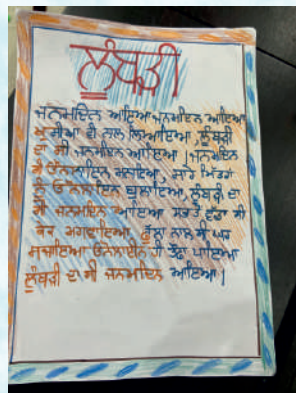 ਲੂੰਬੜੀ
ਜਨਮਦਿਨ ਆਇਆ ਜਨਮਦਿਨ ਆਇਆ
ਖੁਸ਼ੀਆ ਵੀ ਨਾਲ ਲਿਆਇਆ, ਲੂੰਬੜੀ
ਦਾ ਸੀ ਜਨਮਦਿਨ ਆਇਆ | ਜਨਮਦਿਨ
ਸੀ ਓਨਲਾਈਨ ਮਨਾਇਆ, ਸਾਰੇ ਮਿੱਤਰਾਂ
ਨੂੰ ਓਨਲਾਈਨ ਬੁਲਾਇਆ, ਲੂੰਬੜੀ ਦਾ
ਸੀ ਜਨਮਦਿਨ ਆਇਆ ਸਭਤੋਂ ਵੱਡਾ ਸੀ
ਕੇਕ ਮੰਗਵਾਇਆ, ਫੁੱਲਾਂ ਨਾਲ ਸੀ ਘਰ
ਸਜਾਇਆ ਓਨਲਾਈਨ ਹੀ ਪਾਇਆ
ਲੂੰਬੜੀ ਦਾ ਸੀ ਜਨਮਦਿਨ ਆਇਆ |